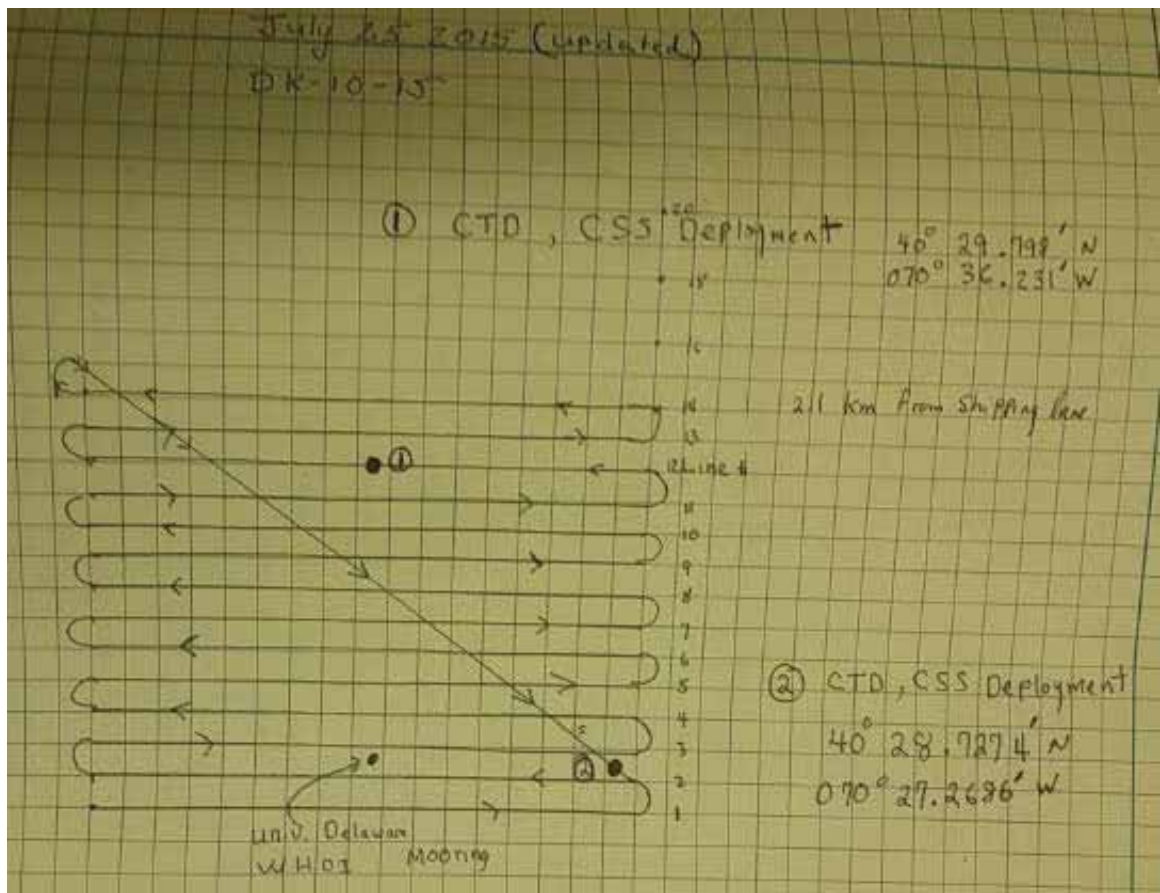 July 25 2015 (updated)
DK-10-15
① CTD, CSS Deployment
40° 29.798' N
070° 36.231' W
18
16
14
211 km from Shipping lane
13
12 Line #
11
10
9
8
7
6
5
4
3
2
1
② CTD, CSS Deployment
40° 28.7274' N
070° 27.2686' W
①
②
Univ. Delaware
WHOI Mooring